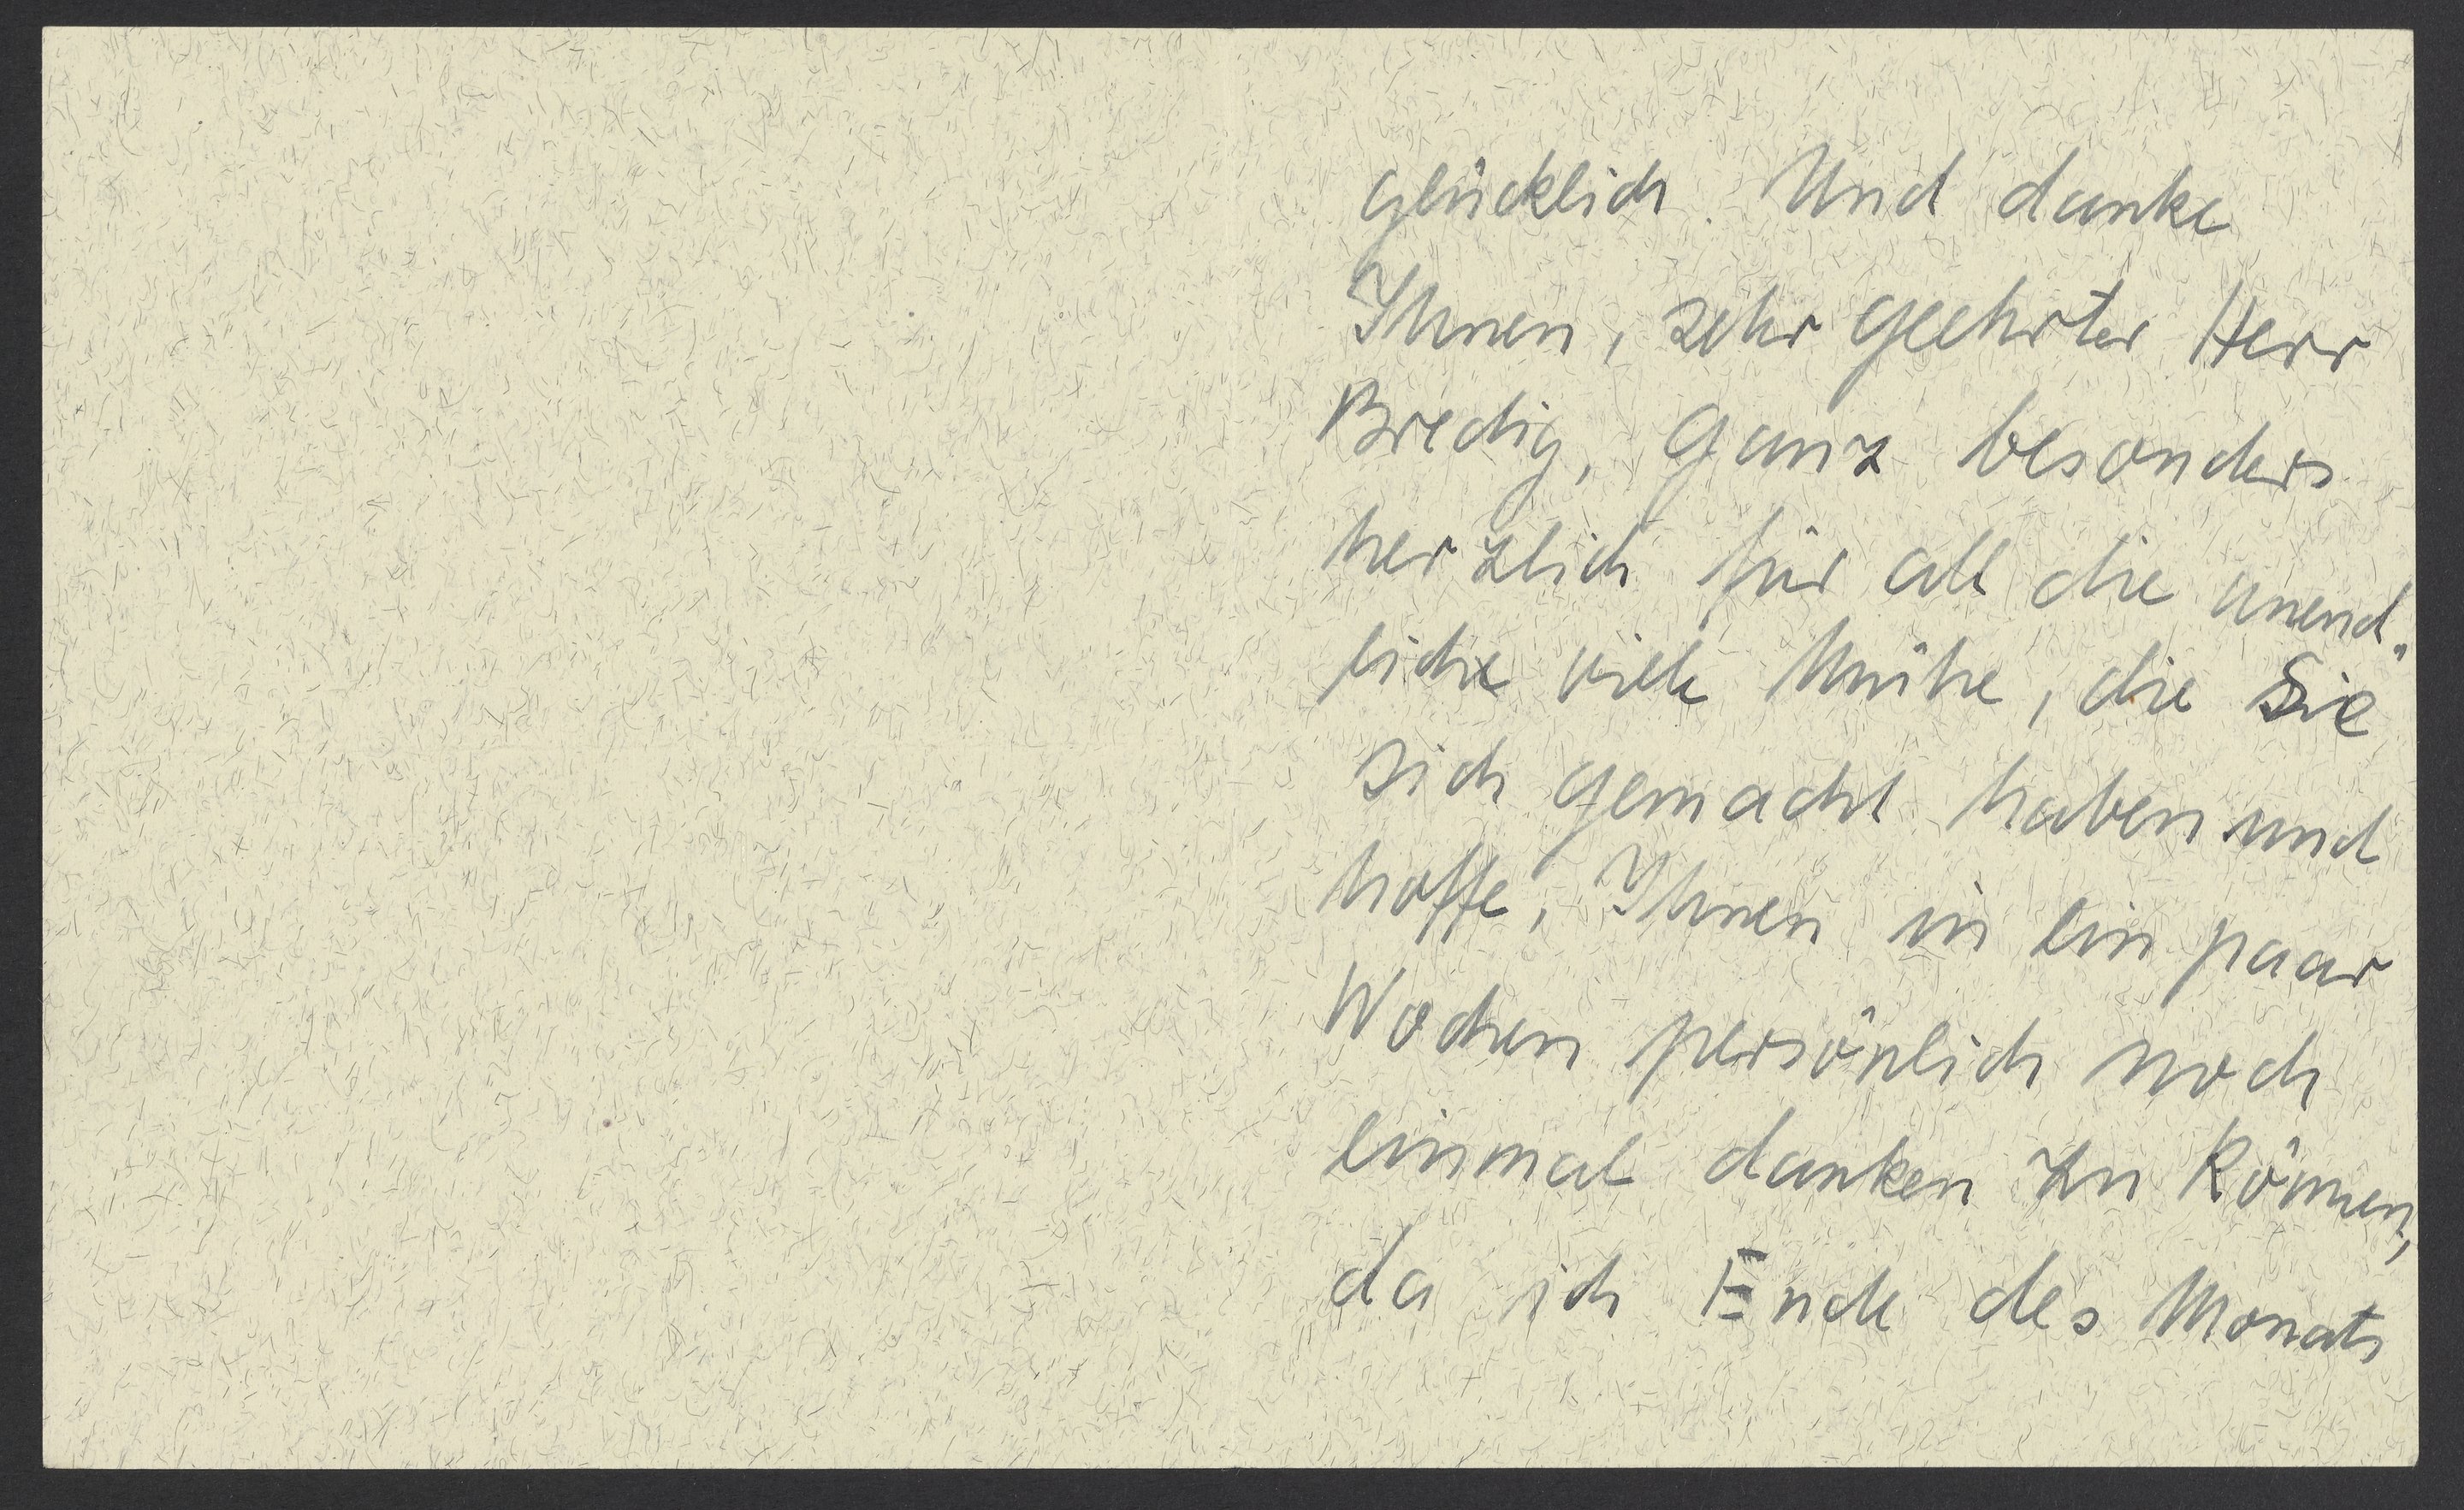 glücklich. Und danke
Ihnen, sehr geehrter Herr
Bredig, ganz besonders
herzlich für all die unend-
liche viele Mühe, die Sie
sich gemacht haben und
hoffe, Ihnen in ein paar
Wochen persönlich noch
einmal danken zu können,
da ich Ende des Monats